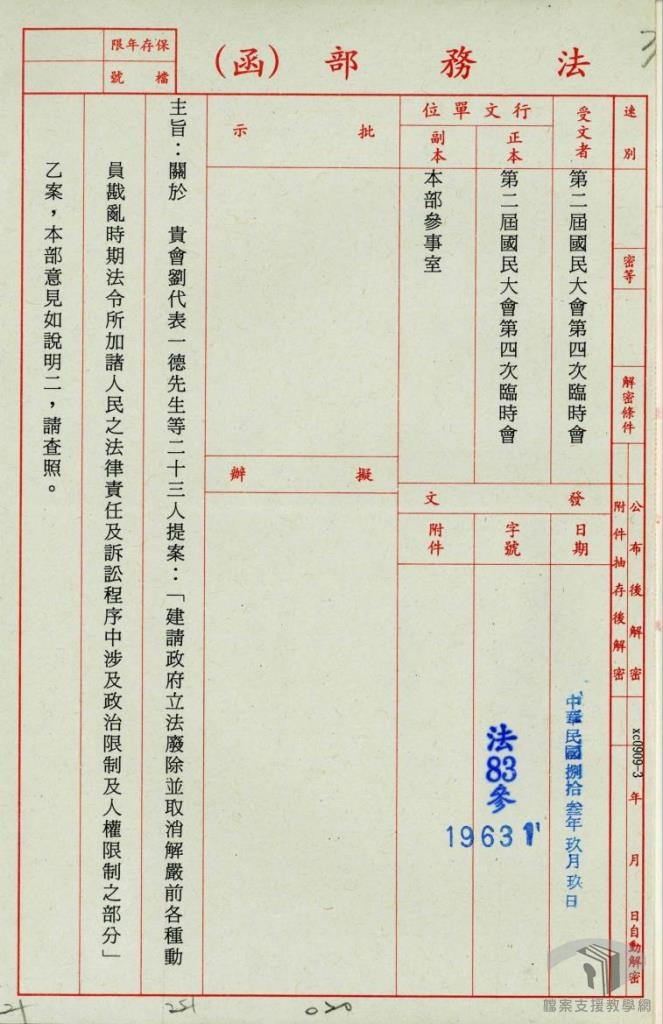 法務部(函)
保存年限
檔號
速別
密等
解密條件
公布後解密
附件抽存後解密
年 月 日自動解密
xc0909-3
受文者
第二屆國民大會第四次臨時會
行文單位
正本
第二屆國民大會第四次臨時會
副本
本部參事室
發文
日期
中華民國捌拾叁年玖月玖日
字號
法83參
19631
附件
批示
擬辦
主旨：關於 貴會劉代表一德先生等二十三人提案：「建請政府立法廢除並取消解嚴前各種動
員戡亂時期法令所加諸人民之法律責任及訴訟程序中涉及政治限制及人權限制之部分」
乙案，本部意見如說明二，請查照。
020
251
檔案支援教學網